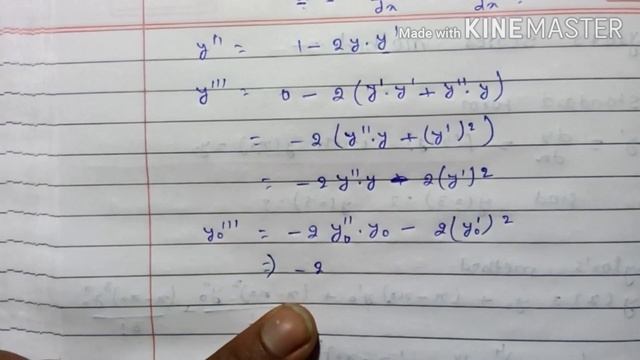 dx dx
Made with KINEMASTER
y'' = 1 - 2y · y'
y''' = 0 - 2 (y' · y' + y'' · y)
= -2 (y'' · y + (y')²)
= -2y'' · y - 2(y')²
y₀''' = -2 y₀'' · y₀ - 2(y₀')²
⇒ -2